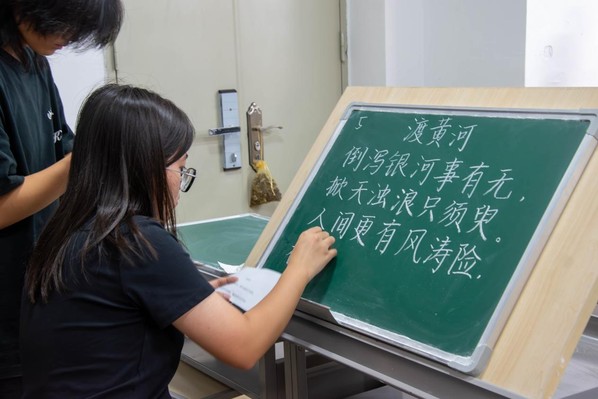 5 渡黄河
倒泻银河事有无，
掀天浊浪只须臾。
人间更有风涛险，